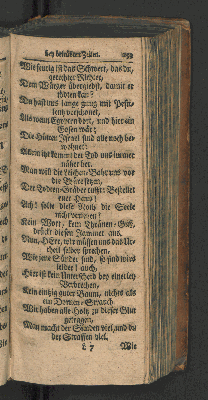 bey betrübten Zeiten. 253
Wie feurig ist das Schwert, das du,
gerechter Richter,
Dem Würger übergiebst, damit er
tödten kan?
Du hast uns lange gnug mit Pesti-
lentz verschonet,
Als wenn Egypten dort, und hier ein
Gosen wär;
Die Hütten Israel sind alle noch be-
wohnet:
Allein itzt kommt der Tod uns immer
näher her.
Man will die Leichen-Bahr uns vor
die Thüre setzen,
Der Todten-Gräber rufft: Bestellet
euer Haus!
Ach! solte diese Noth die Seele
nicht verletzen?
Kein Wort, kein Thränen-Guß,
drückt diesen Jammer aus.
Nun, HErr, wir müssen uns das Ur-
theil selber sprechen,
Wie jene Sünder sind, so sind wirs
leider! auch,
Hier ist kein Unterscheid bey einerley
Verbrechen,
Kein einzig guter Baum, nichts als
ein Dornen-Strauch
Wir haben alle Holtz zu dieser Glut
getragen,
Man macht der Sünden viel, und du
der Straffen viel.
L 7 Wie